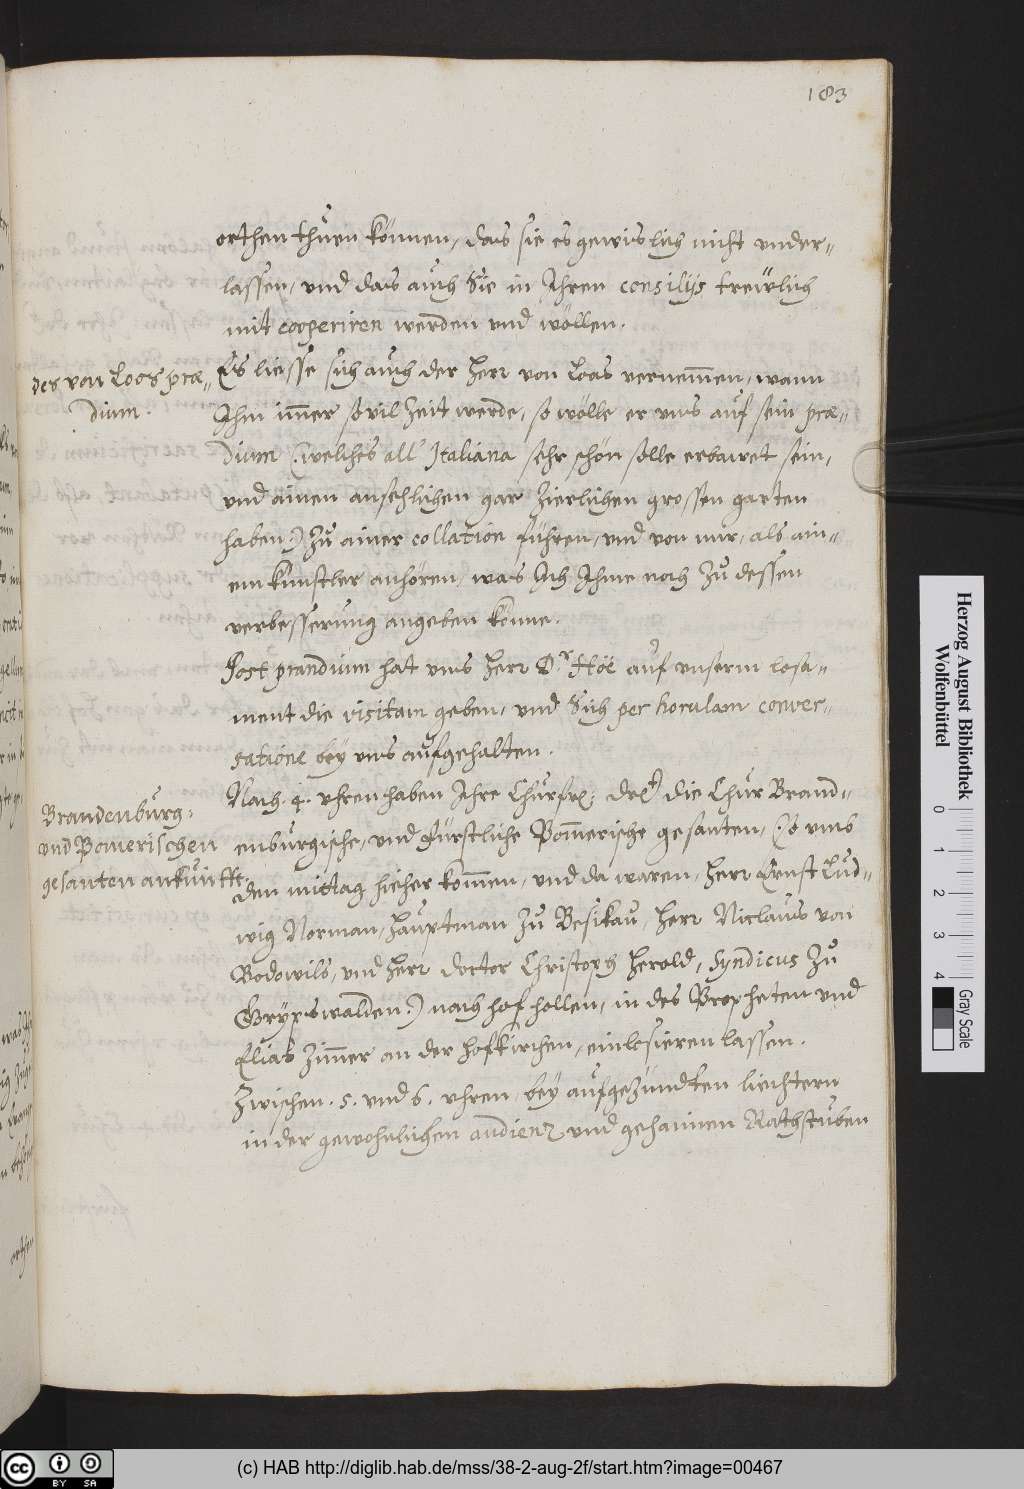 183
orthen thuen können, das sie es gewislich nicht under-
lassen, und das auch Sie in Ihren consilijs trewlich
mit cooperiren werden und wöllen.
des von Loos præ-
dium.
Es liesse sich auch der Herr von Loas vernemen, wann
Ihm imer so vil Zeit werde, so wölle er uns auf sein præ-
dium (:welches all' Italiana sehr schön solle erbawet sein,
und ainen ansehlichen gar Zierlichen grossen garten
haben:) Zu ainer collation führen, und von mir, als ain-
em Künstler anhören, was Ich Ihme noch Zu dessen
verbesserung angeben könne.
Post prandium hat uns Herr Dr Höe auf unserm losa-
ment die visitam geben, und Sich per horulam conver-
satione bey uns aufgehalten.
Brandenburg-
und Pomerischen
gesanten ankunfft.
Nach .4. uhren haben Ihre Churfrl: Drl: die Chur Brand-
enburgische, und fürstliche Pommerische gesanten, (:so umb
den mittag hieher komen, und da waren, Herr Ernst Lud-
wig Norman, Hauptman Zu Besikau, Herr Niclaus von
Bodowils, und Herr doctor Christoph Herold, Syndicus Zu
Grypswalden:) nach hof hollen, in des Propheten und
Elias Zimer an der hofkirchen, einlosieren lassen.
Zwischen .5. und 6. uhren, bey aufgezündten liechtern
in der gewohnlichen audienz und gehaimen Rathstuben
Herzog August Bibliothek
Wolfenbüttel
0 1 2 3 4
Gray Scale
CC BY SA
(c) HAB http://diglib.hab.de/mss/38-2-aug-2f/start.htm?image=00467